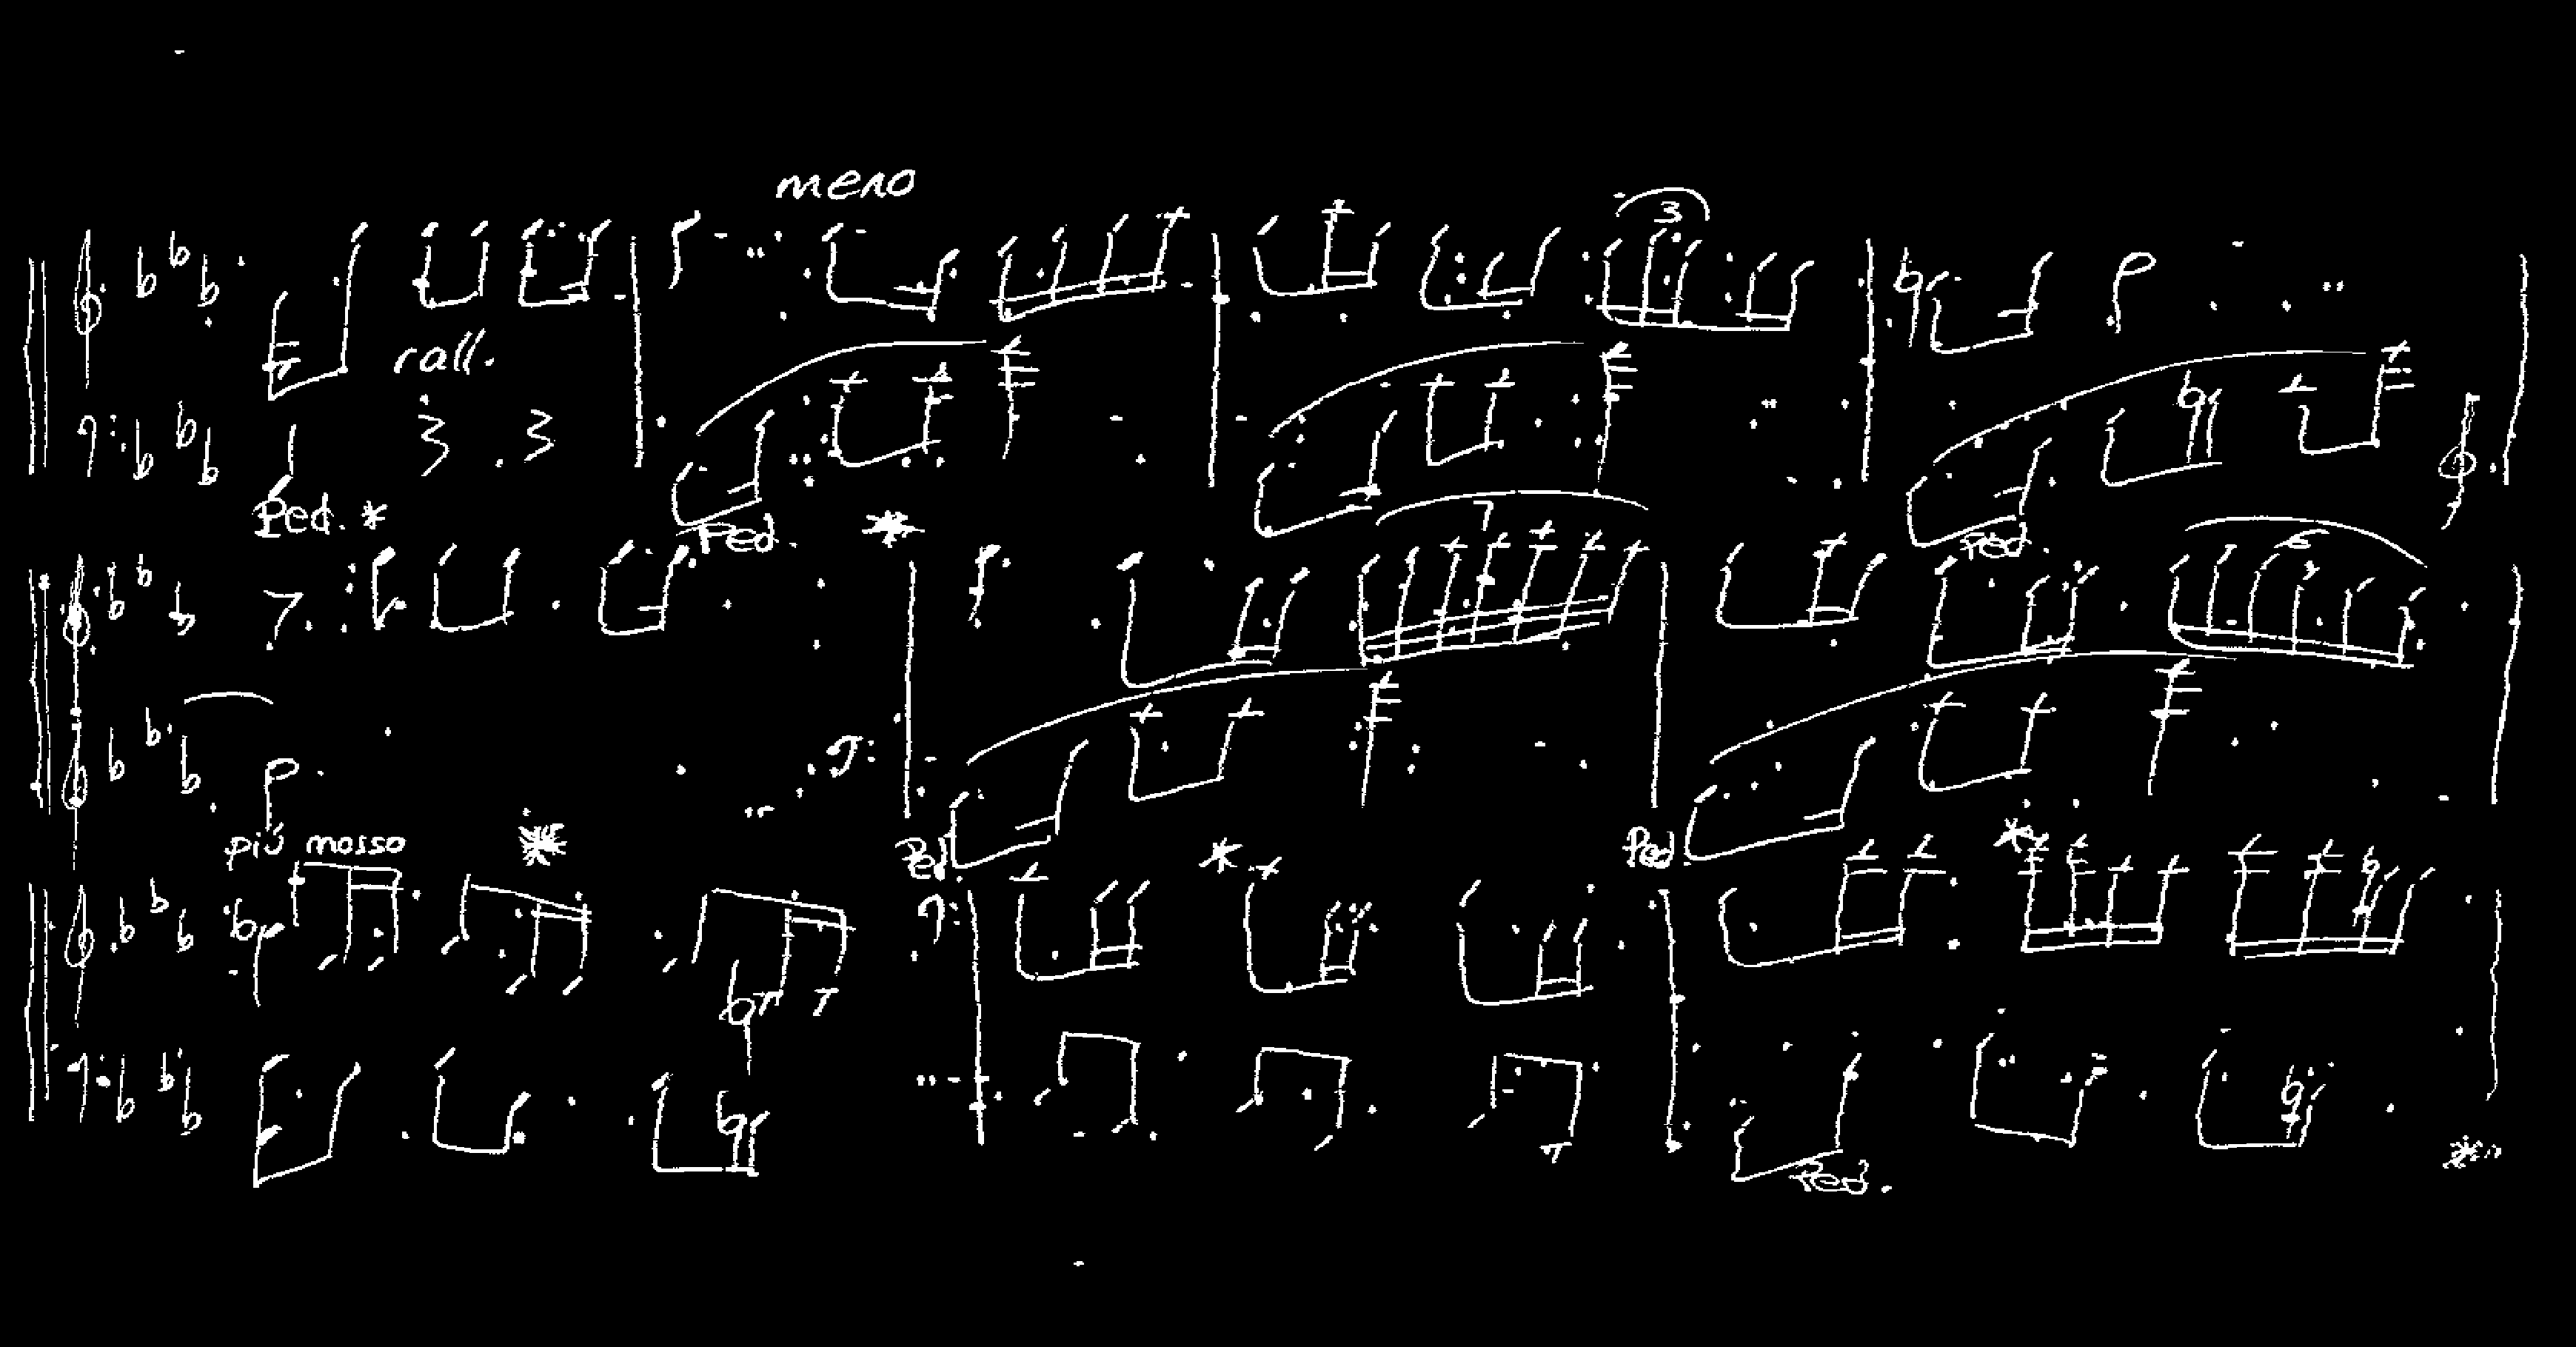 meno
3
rall.
Ped. *
Ped. *
7
Ped.
6
più mosso
*
Ped. *
Ped. *
Ped. *